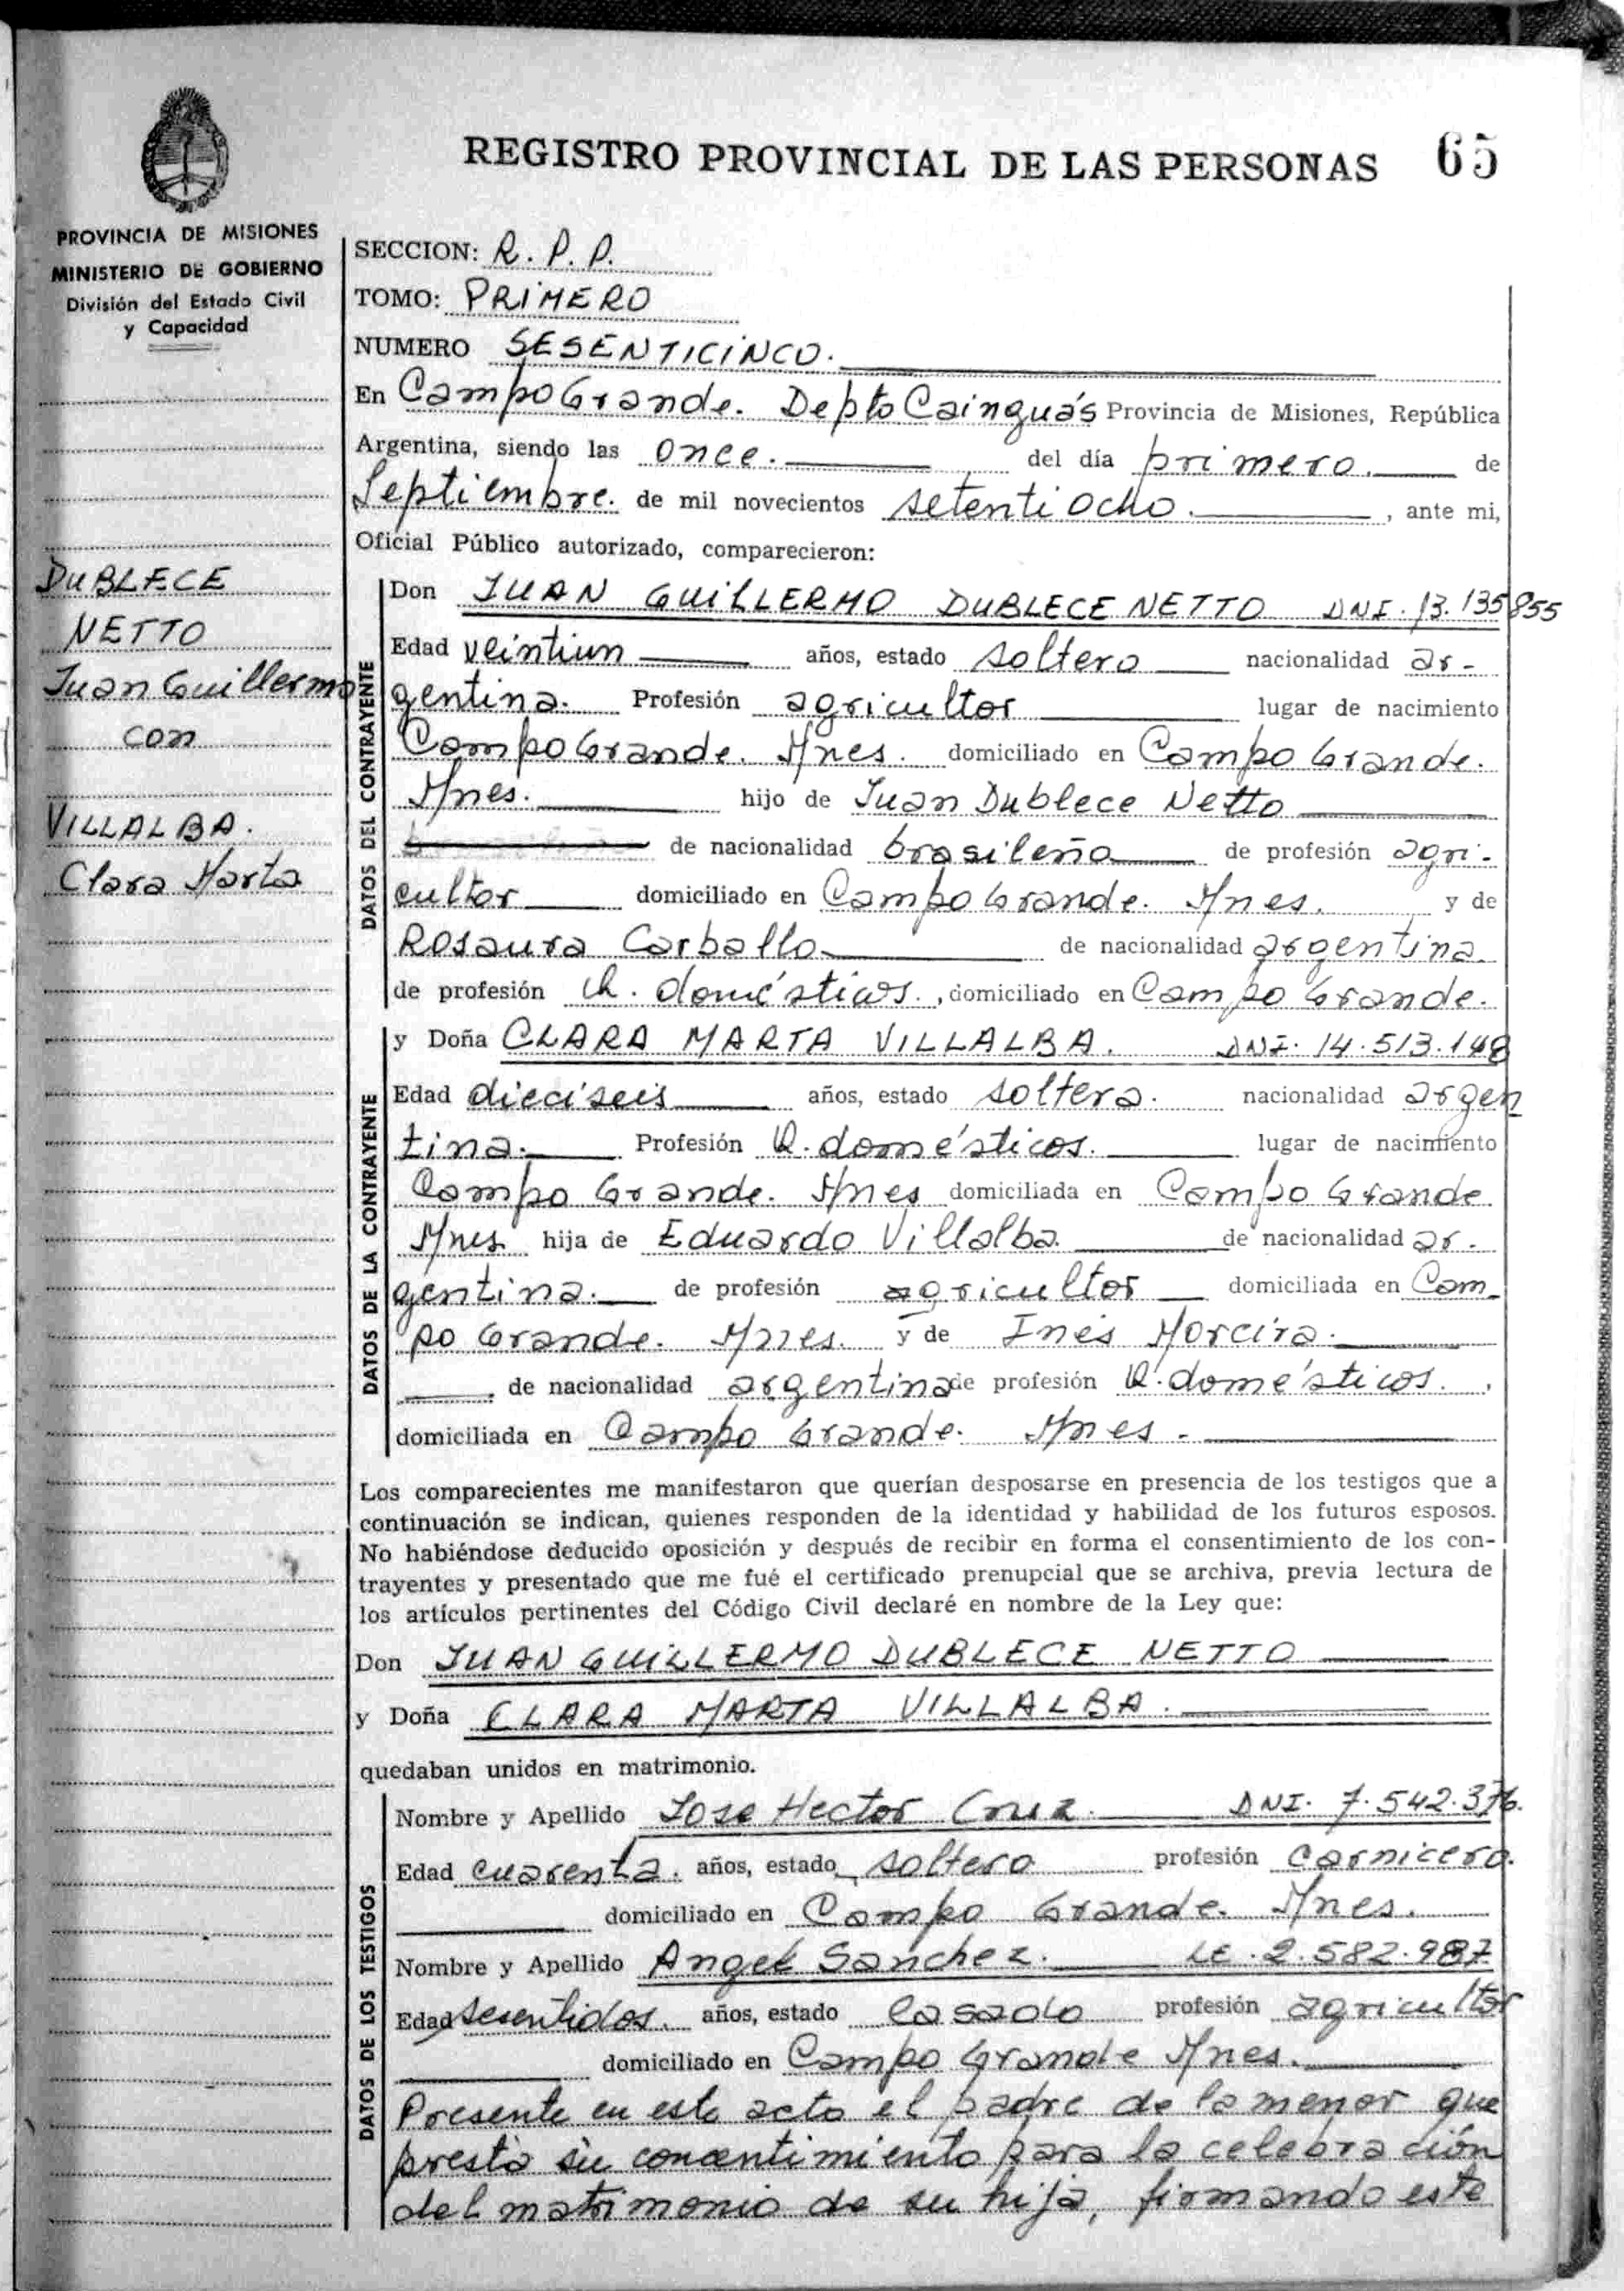 REGISTRO PROVINCIAL DE LAS PERSONAS 65
PROVINCIA DE MISIONES
MINISTERIO DE GOBIERNO
División del Estado Civil
y Capacidad
DUBLECE
NETTO
Juan Guillermo
con
VILLALBA.
Clara Marta
SECCION: R. P. P.
TOMO: PRIMERO
NUMERO SESENTICINCO.
En Campo Grande. Depto Cainguás Provincia de Misiones, República
Argentina, siendo las once. del día primero. de
Septiembre. de mil novecientos setentiocho. , ante mi,
Oficial Público autorizado, comparecieron:
DATOS DEL CONTRAYENTE
Don JUAN GUILLERMO DUBLECE NETTO DNI. 13.135855
Edad veintiun años, estado soltero nacionalidad ar-
gentina. Profesión agricultor lugar de nacimiento
Campo Grande. Mnes. domiciliado en Campo Grande.
Mnes. hijo de Juan Dublece Netto
de nacionalidad brasileña de profesión agri-
cultor domiciliado en Campo Grande. Mnes. y de
Rosaura Carballo de nacionalidad argentina.
de profesión Q. domésticos. , domiciliado en Campo Grande.
DATOS DE LA CONTRAYENTE
y Doña CLARA MARTA VILLALBA. DNI. 14.513.148
Edad dieciseis años, estado soltera. nacionalidad argen
tina. Profesión Q. domésticos. lugar de nacimiento
Campo Grande. Mnes domiciliada en Campo Grande
Mnes hija de Eduardo Villalba. de nacionalidad ar-
gentina. de profesión agricultor domiciliada en Cam-
po Grande. Mnes. y de Inés Moreira.
de nacionalidad argentina de profesión Q. domésticos. .
domiciliada en Campo Grande. Mnes.
Los comparecientes me manifestaron que querían desposarse en presencia de los testigos que a
continuación se indican, quienes responden de la identidad y habilidad de los futuros esposos.
No habiéndose deducido oposición y después de recibir en forma el consentimiento de los con-
trayentes y presentado que me fué el certificado prenupcial que se archiva, previa lectura de
los artículos pertinentes del Código Civil declaré en nombre de la Ley que:
Don JUAN GUILLERMO DUBLECE NETTO
y Doña CLARA MARTA VILLALBA.
quedaban unidos en matrimonio.
DATOS DE LOS TESTIGOS
Nombre y Apellido Jose Hector Cruz. DNI. 7.542.376.
Edad cuarenta. años, estado soltero profesión carnicero.
domiciliado en Campo Grande. Mnes.
Nombre y Apellido Angel Sanchez. LE. 2.582.987
Edad sesentidos. años, estado casado profesión agricultor
domiciliado en Campo Grande Mnes.
Presente en este acto el padre de la menor que
presta su concentimiento para la celebración
del matrimonio de su hija, firmando este